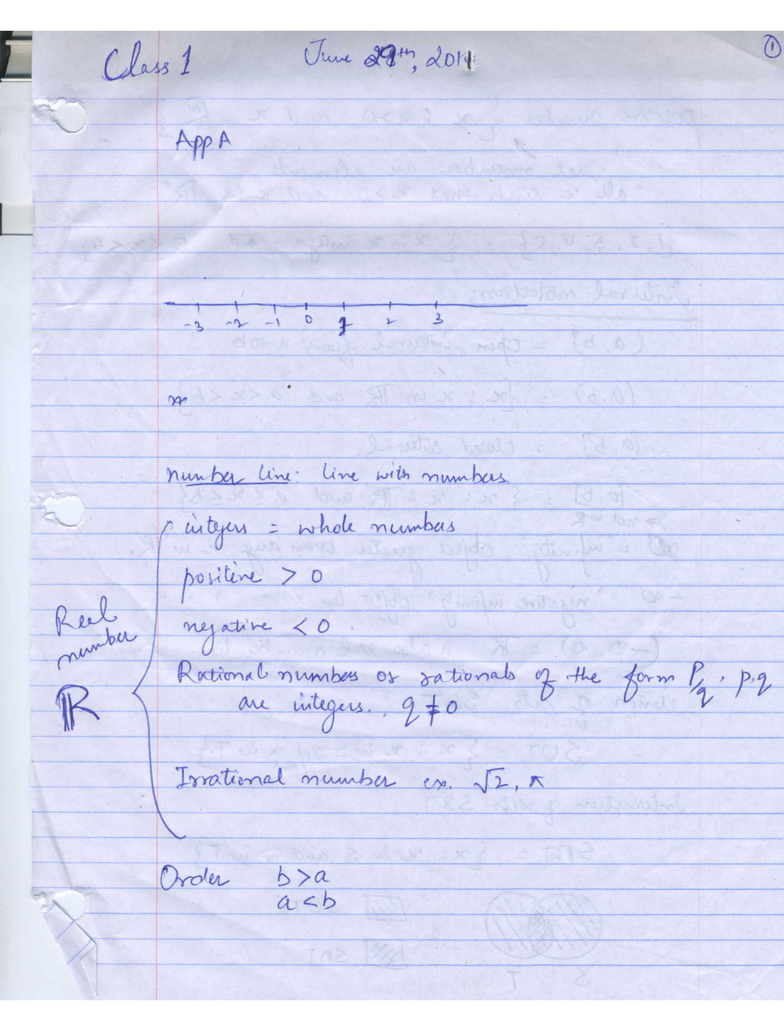 Class 1 June 29th, 2011 ①
App A
-3 -2 -1 0 1 2 3
x
number line: line with numbers.
integers = whole numbers
positive > 0
Real number ℝ
negative < 0
Rational numbers or rationals of the form p/q, p,q
are integers., q ≠ 0
Irrational number ex. √2, π
Order b > a
a < b